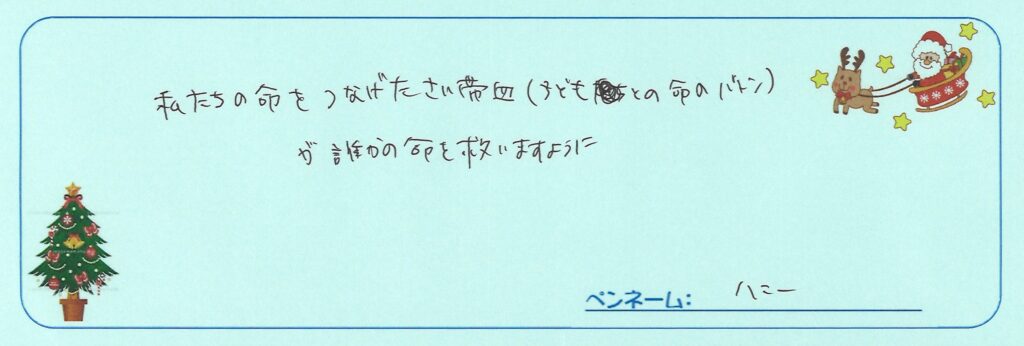 私たちの命をつなげたさい帯血(子どもとの命のバトン)
が誰かの命を救いますように
ペンネーム: ハニー